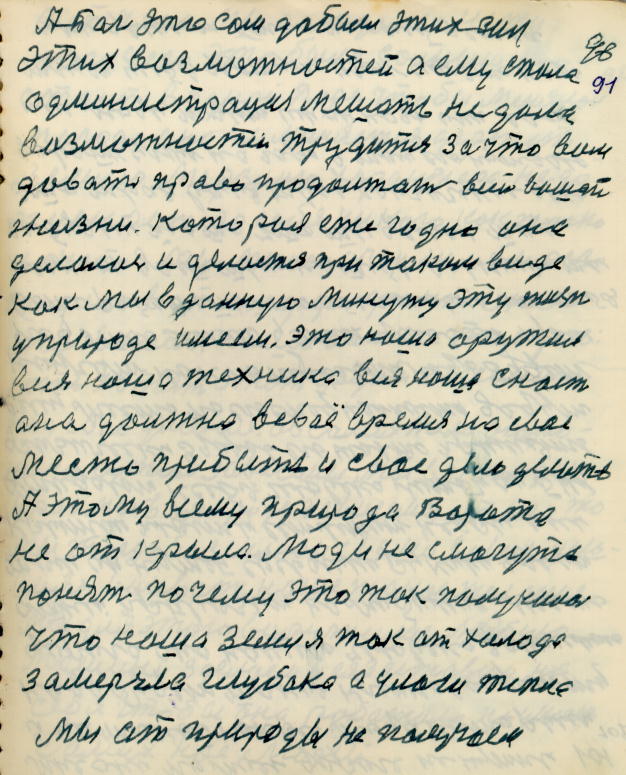 А Бог это сам добыли этих сил
98
этих возможностей а ему стола
91
администрацыя мешать не дола
возможностей трудится за что вам
давать право продолжать всей вашей
жизни. Которая ежегодно она
делолось и делается при таком виде
как мы в данную минуту эту жизнь
у природе имеем. Это наша оружия
вся наша техника вся наша снасть
ана должна в сваё время на свае
место прибыть и свае дело делать
А этому всему природа Ворота
не открыла. Люди не смогуть
понять почему это так получилось
что наша земля так от холода
замерзла глубоко а
тепла
мы от природы не получаем